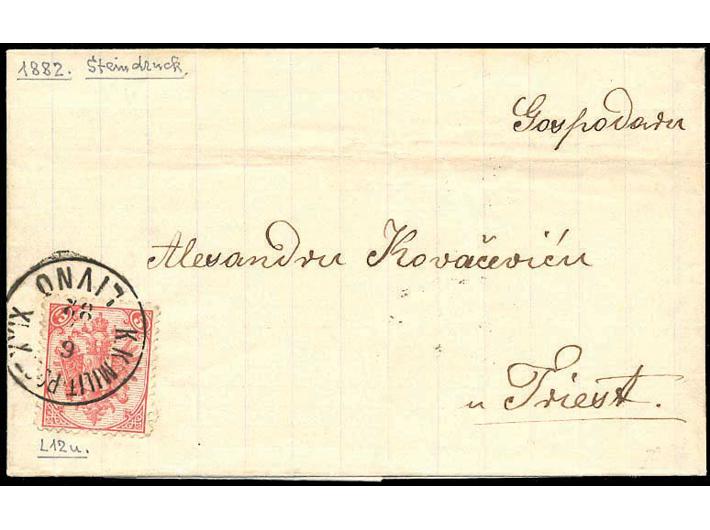 1882. Steindruck.
Gospodaru
Alesandru Kovačeviću
u Triest.
LIVNO
82
9
K.K. MILIT. POST
5
L12u.